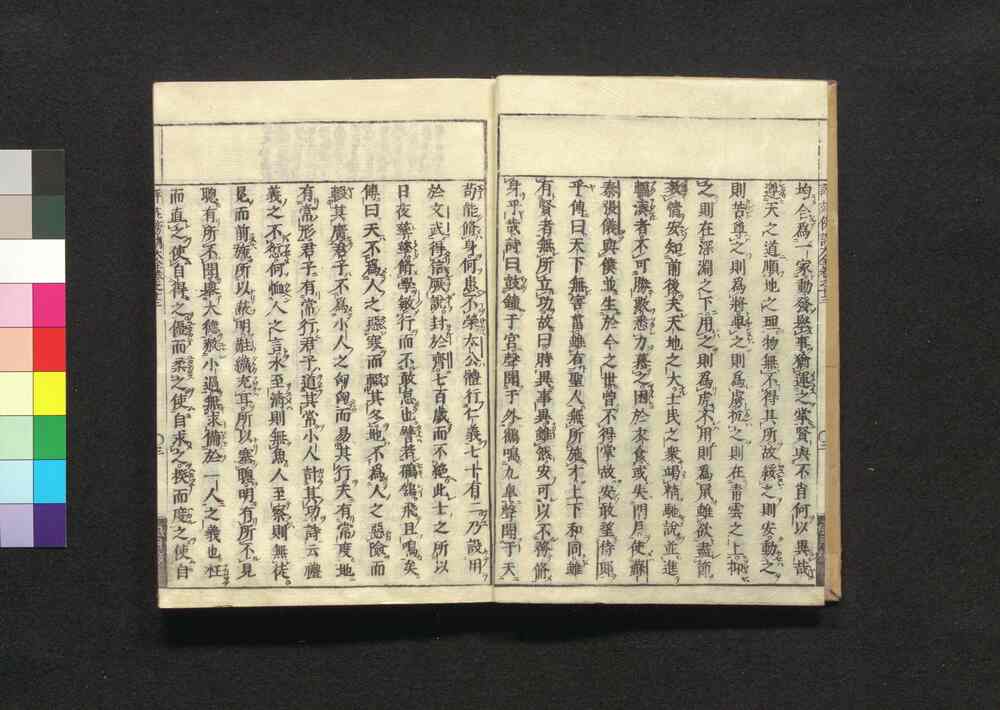 均合為一家動發舉事猶運之掌賢與不肖何以異哉
遵天之道順地之理物無不得其所故綏之則安動之
則苦尊之則為將卑之則為虜抗之則在青雲之上抑
之則在深淵之下用之則為虎不用則為鼠雖欲盡節
效情安知前後夫天地之大士民之衆竭精馳說並進
輻湊者不可勝數悉力慕之困於衣食或失門戶使蘇
秦張儀與僕並生於今之世曾不得掌故安敢望侍郎
乎傳曰天下無害菑雖有聖人無所施才上下和同雖
有賢者無所立功故曰時異事異雖然安可以不務脩
身乎哉詩曰鼓鐘于宮聲聞于外鶴鳴九皐聲聞于天
苟能脩身何患不榮太公體行仁義七十有二乃設用
於文武得信厥說封於齊七百歲而不絶此士之所以
日夜孳孳脩學敏行而不敢怠也譬若鶺鴒飛且鳴矣
傳曰天不為人之惡寒而輟其冬地不為人之惡險而
輟其廣君子不為小人之匈匈而易其行天有常度地
有常形君子有常行君子道其常小人計其功詩云禮
義之不愆何恤人之言水至淸則無魚人至察則無徒
冕而前旒所以蔽明黈纊充耳所以塞聰明有所不見
聰有所不聞擧大德赦小過無求備於一人之義也枉
而直之使自得之優而柔之使自求之揆而度之使自